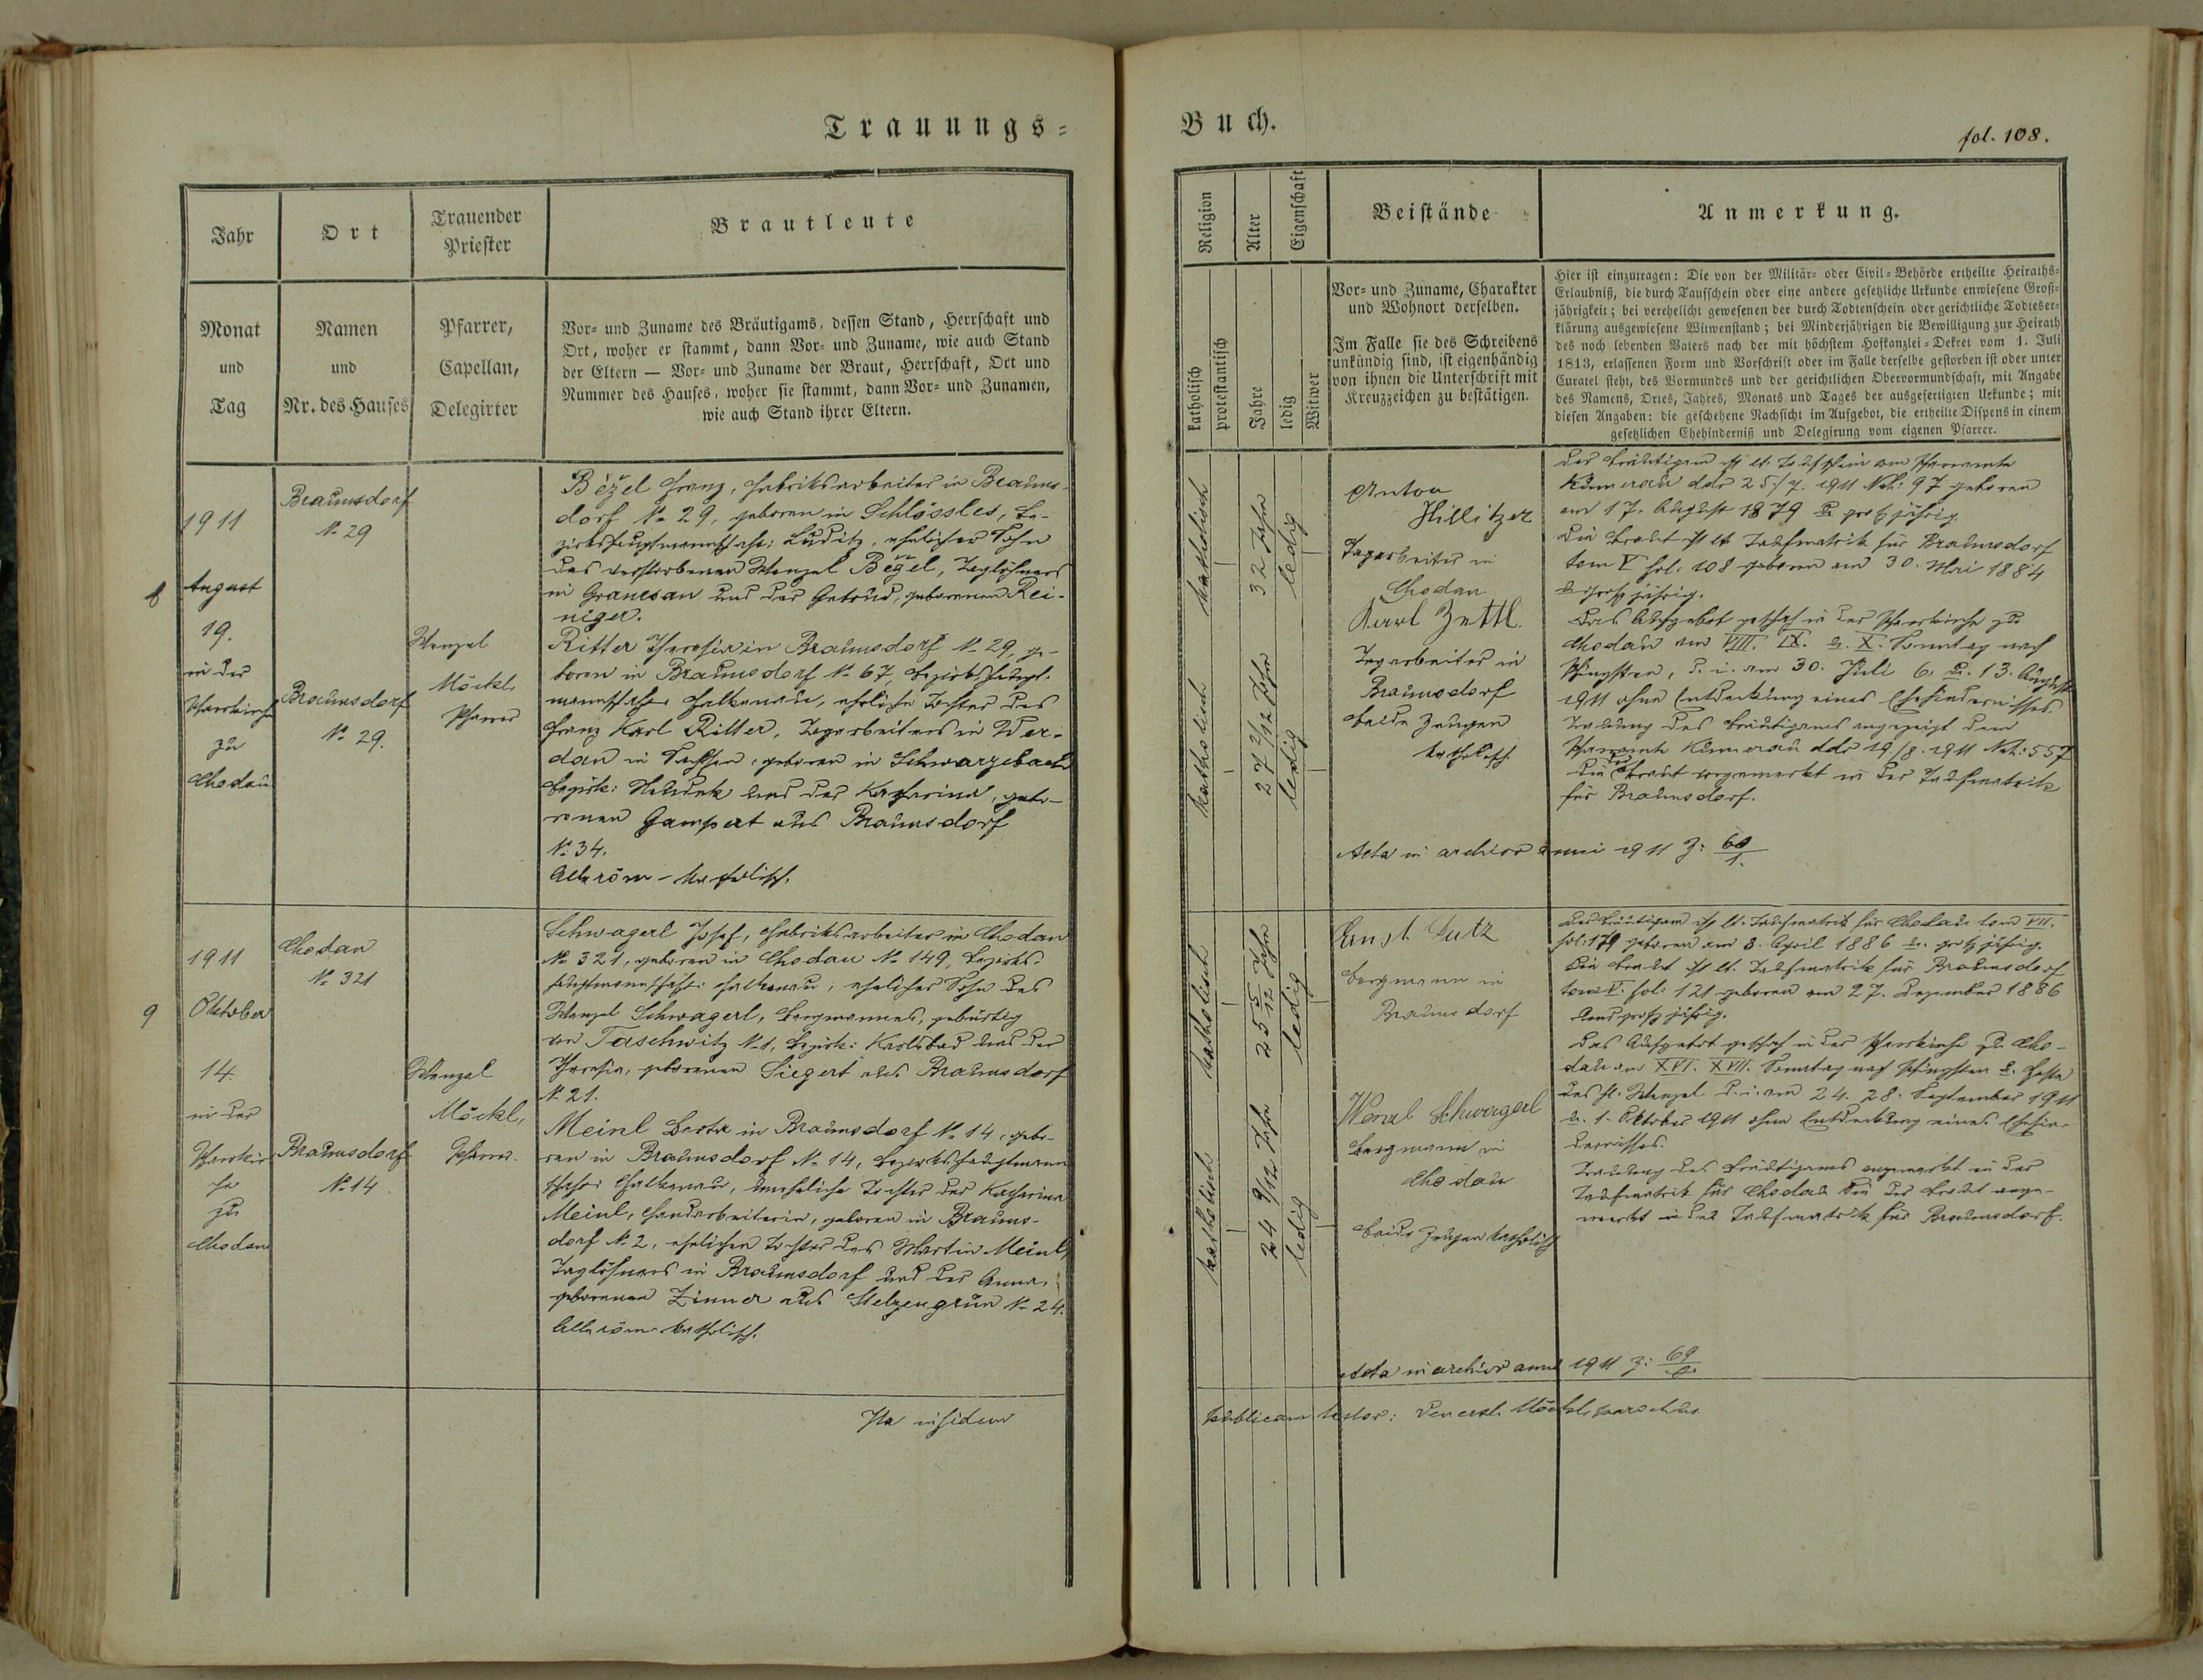 Trauungs-
Buch.
fol. 108.
Jahr
Ort
Trauender
Priester
Brautleute
Monat
und
Tag
Namen
und
Nr. des Hauses
Pfarrer,
Capellan,
Delegirter
Vor- und Zuname des Bräutigams, dessen Stand, Herrschaft und
Ort, woher er stammt, dann Vor- und Zuname, wie auch Stand
der Eltern — Vor- und Zuname der Braut, Herrschaft, Ort und
Nummer des Hauses, woher sie stammt, dann Vor- und Zunamen,
wie auch Stand ihrer Eltern.
Religion
Alter
Eigenschaft
Beistände
Anmerkung.
katholisch
protestantisch
Jahre
ledig
Witwer
Vor- und Zuname, Charakter
und Wohnort derselben.
Im Falle sie des Schreibens
unkündig sind, ist eigenhändig
von ihnen die Unterschrift mit
Kreuzzeichen zu bestätigen.
Hier ist einzutragen: Die von der Militär- oder Civil-Behörde ertheilte Heiraths-
Erlaubniß, die durch Taufschein oder eine andere gesetzliche Urkunde erwiesene Groß-
jährigkeit; bei verehelicht gewesenen der durch Todtenschein oder gerichtliche Todteser-
klärung ausgewiesene Witwenstand; bei Minderjährigen die Bewilligung zur Heirath
des noch lebenden Vaters nach der mit höchstem Hofkanzlei-Dekret vom 1. Juli
1813, erlassenen Form und Vorschrift oder im Falle derselbe gestorben ist oder unter
Curatel steht, des Vormundes und der gerichtlichen Obervormundschaft, mit Angabe
des Namens, Ortes, Jahres, Monats und Tages der ausgefertigten Urkunde; mit
diesen Angaben: die geschehene Nachsicht im Aufgebot, die ertheilte Dispens in einem
gesetzlichen Ehehinderniß und Delegirung vom eigenen Pfarrer.
8
1911
August
19.
in der
Pfarrkirche
zu
Chodau
Braunsdorf
№ 29
Braunsdorf
№ 29.
Wenzel
Möckl,
Pfarrer
Bèžel Franz, Fabriksarbeiter in Brauns-
dorf № 29, geboren in Schlössles, Be-
zirkshauptmannschaft: Luditz, ehelicher Sohn
des verstorbenen Wenzel Bèžel, Taglöhners
in Granesau und der Gertrud, geborenen Rei-
niger.
Ritter Theresia in Braunsdorf № 29, ge-
boren in Braunsdorf № 67, Bezirkshaupt-
mannschaft Falkenau, eheliche Tochter des
Franz Karl Ritter, Tagarbeiters in Wer-
dau in Sachsen, geboren in Schwarzebach
Bezirk: Neudek und der Katharina, gebo-
renen Gampert aus Braunsdorf
№ 34.
Alle röm-katholisch.
katholisch
32 Jahre
ledig
katholisch
27 2/12 Jahre
ledig
Anton
Hillitzer
Tagarbeiter in
Chodau.
Karl Zettl.
Tagarbeiter in
Braunsdorf
beide Zeugen
katholisch.
Der Bräutigam ist lt. Taufschein vom Pfarramte
Kumerau ddo 25/7. 1911 № : 97 geboren
am 17. August 1879 u. großjährig.
Die Braut ist lt. Taufmatrik für Braunsdorf
tom V fol. 108 geboren am 30. Mai 1884
u. großjährig.
Das Aufgebot geschah in der Pfarrkirche zu
Chodau am VIII. IX. u. X. Sonntag nach
Pfingsten, d. i. am 30. Juli 6. u. 13. August
1911 ohne Entdeckung eines Ehehindernisses.
Trauung des Bräutigams angezeigt dem
Pfarramte Kumerau ddo 19/8. 1911 № : 557
die der Braut vorgemerkt in der Taufmatrik
für Braunsdorf.
Acta in archivo anni 1911 Z:
9
1911
Oktober
14.
in der
Pfarrkir-
che
zu
Chodau
Chodau
№ 321
Braunsdorf
№ 14
Wenzel
Möckl,
Pfarrer.
Schwagerl Josef, Fabriksarbeiter in Chodau
№ 321, geboren in Chodau № 149, Bezirks-
hauptmannschaft: Falkenau, ehelicher Sohn des
Wenzel Schwagerl, Bergmannes, gebürtig
von Taschwitz № 1, Bezirk: Karlsbad und der
Theresia, geborenen Siegert aus Braunsdorf
№ 21.
Meinl Berta in Braunsdorf № 14, gebo-
ren in Braunsdorf № 14, Bezirkshauptmann-
schaft: Falkenau, uneheliche Tochter der Katharina
Meinl, Handarbeiterin, geboren in Brauns-
dorf № 2, ehelichen Tochter des Martin Meinl,
Taglöhners in Braunsdorf und der Anna,
geborenen Zinner aus Stelzengrün № 24.
Alle röm-katholisch.
katholisch
25 5/12 Jahre
ledig
katholisch
24 9/12 Jahre
ledig
Ernst Lutz
Bergmann in
Braunsdorf
Wenzl Schwagerl
Bergmann in
Chodau
beide Zeugen katholisch
Der Bräutigam ist lt. Taufmatrik für Chodau tom VII.
fol: 179 geboren am 3. April 1886 u. großjährig.
Die Braut ist lt. Taufmatrik für Braunsdorf
tom V. fol: 121 geboren am 27. Dezember 1886
und großjährig.
Das Aufgebot geschah in der Pfarrkirche zu Cho-
dau am XVI. XVII. Sonntag nach Pfingsten u. Feste
des hl. Wenzel d. i. am 24. 28. September 1911
u. 1. Oktober 1911 ohne Entdeckung eines Ehehin-
dernisses.
Trauung des Bräutigams angemerkt in der
Taufmatrik für Chodau die der Braut ange-
merkt in der Taufmatrik für Braunsdorf.
Acta in archivo anni 1911 Z:
Ita in fidem
publicam testor: Vencesl. Möckl, parochus